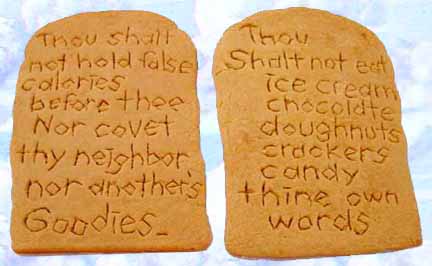 Thou shalt
not hold false
calories
before thee
Nor covet
thy neighbor
nor another's
Goodies_
Thou
Shalt not eat
ice cream
chocolate
doughnuts
crackers
candy
thine own
words